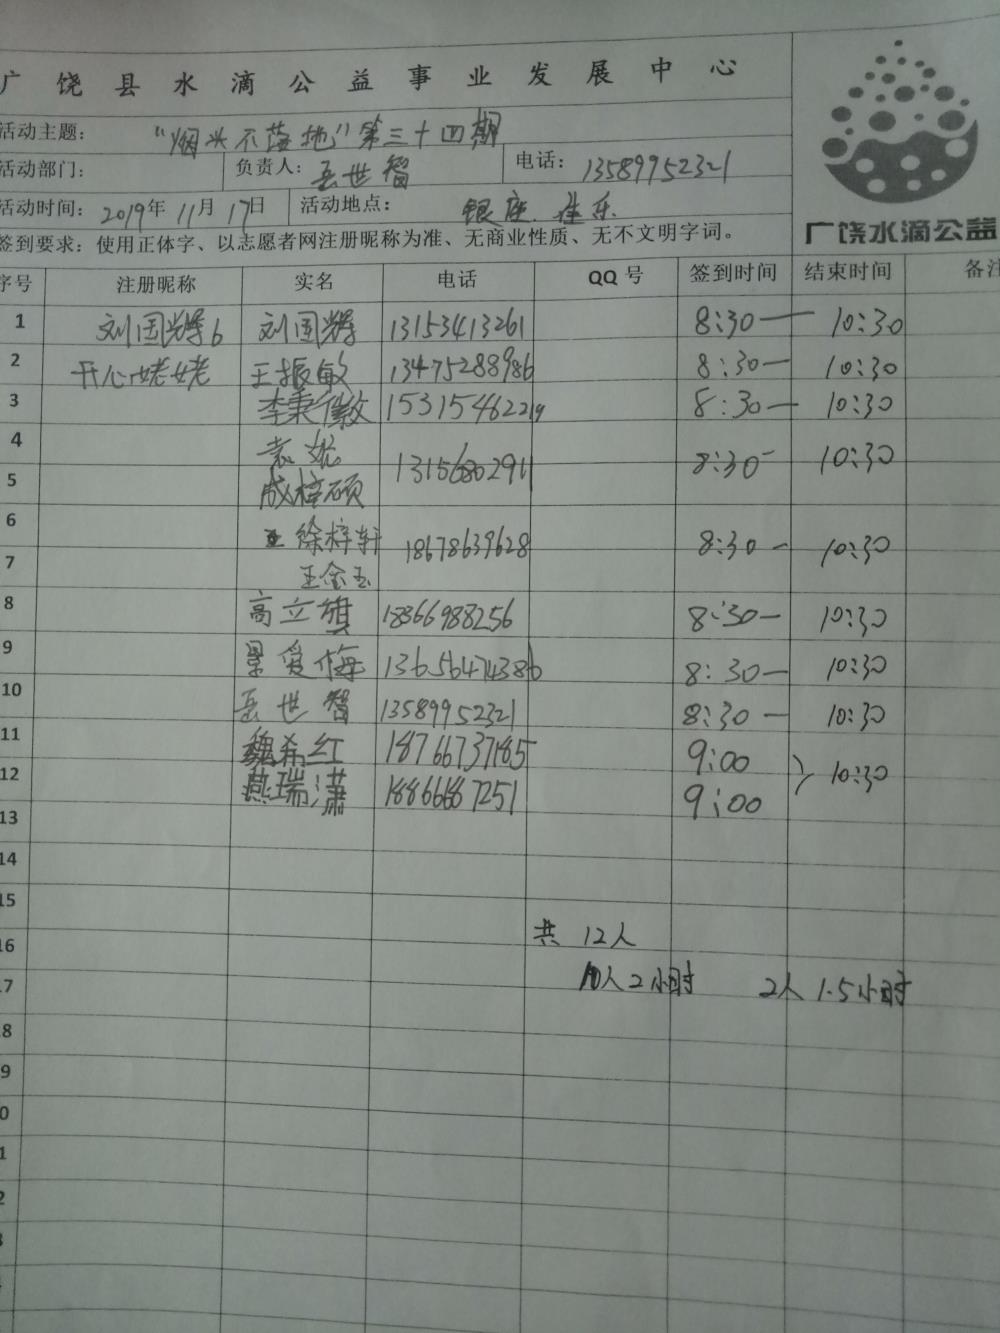 广饶县水滴公益事业发展中心
活动主题： “烟头不落地”第三十四期
活动部门： 负责人：岳世智 电话：13589952321
活动时间：2019年11月17日 活动地点： 银座、佳乐
签到要求：使用正体字、以志愿者网注册昵称为准、无商业性质、无不文明字词。
广饶水滴公益
序号 注册昵称 实名 电话 QQ号 签到时间 结束时间 备注
1 刘国辉6 刘国辉 13153413261 8:30— 10:30
2 开心姥姥 王振敏 13475288986 8:30— 10:30
3 李秉徽 15315462219 8:30— 10:30
4 袁妮 13156802911 8:30- 10:30
5 成梓硕
6 徐梓轩 18678639628 8:30- 10:30
7 王金玉
8 高立旗 18366988256 8:30— 10:30
9 景爱梅 13656474386 8:30— 10:30
10 岳世智 13589952321 8:30— 10:30
11 魏希红 18766737185 9:00 10:30
12 燕瑞潇 18866687251 9:00
13
14
15
16 共12人
17 10人2小时 2人1.5小时
8
9
0
1
2